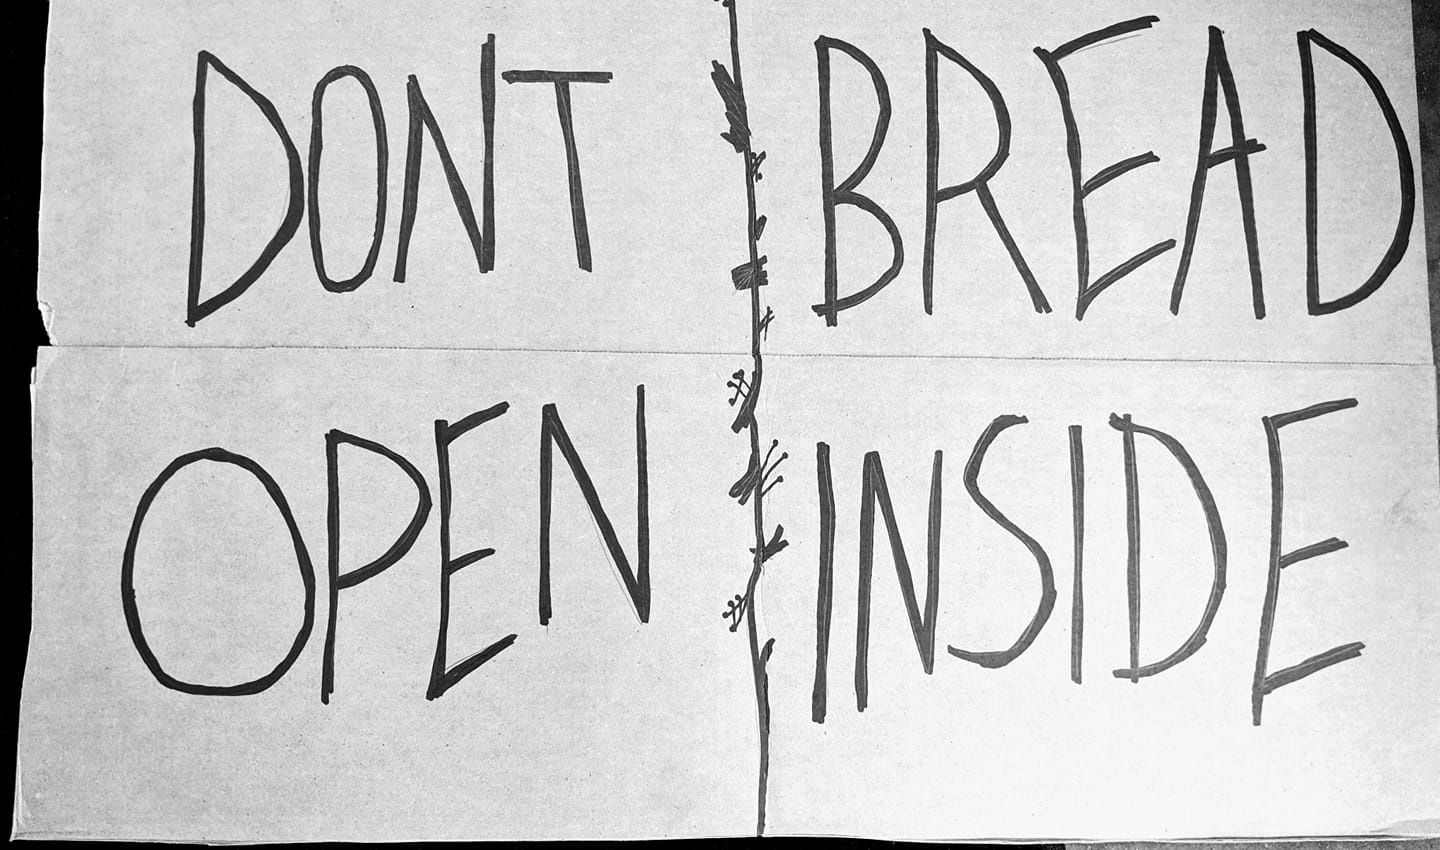 DONT
OPEN
BREAD
INSIDE